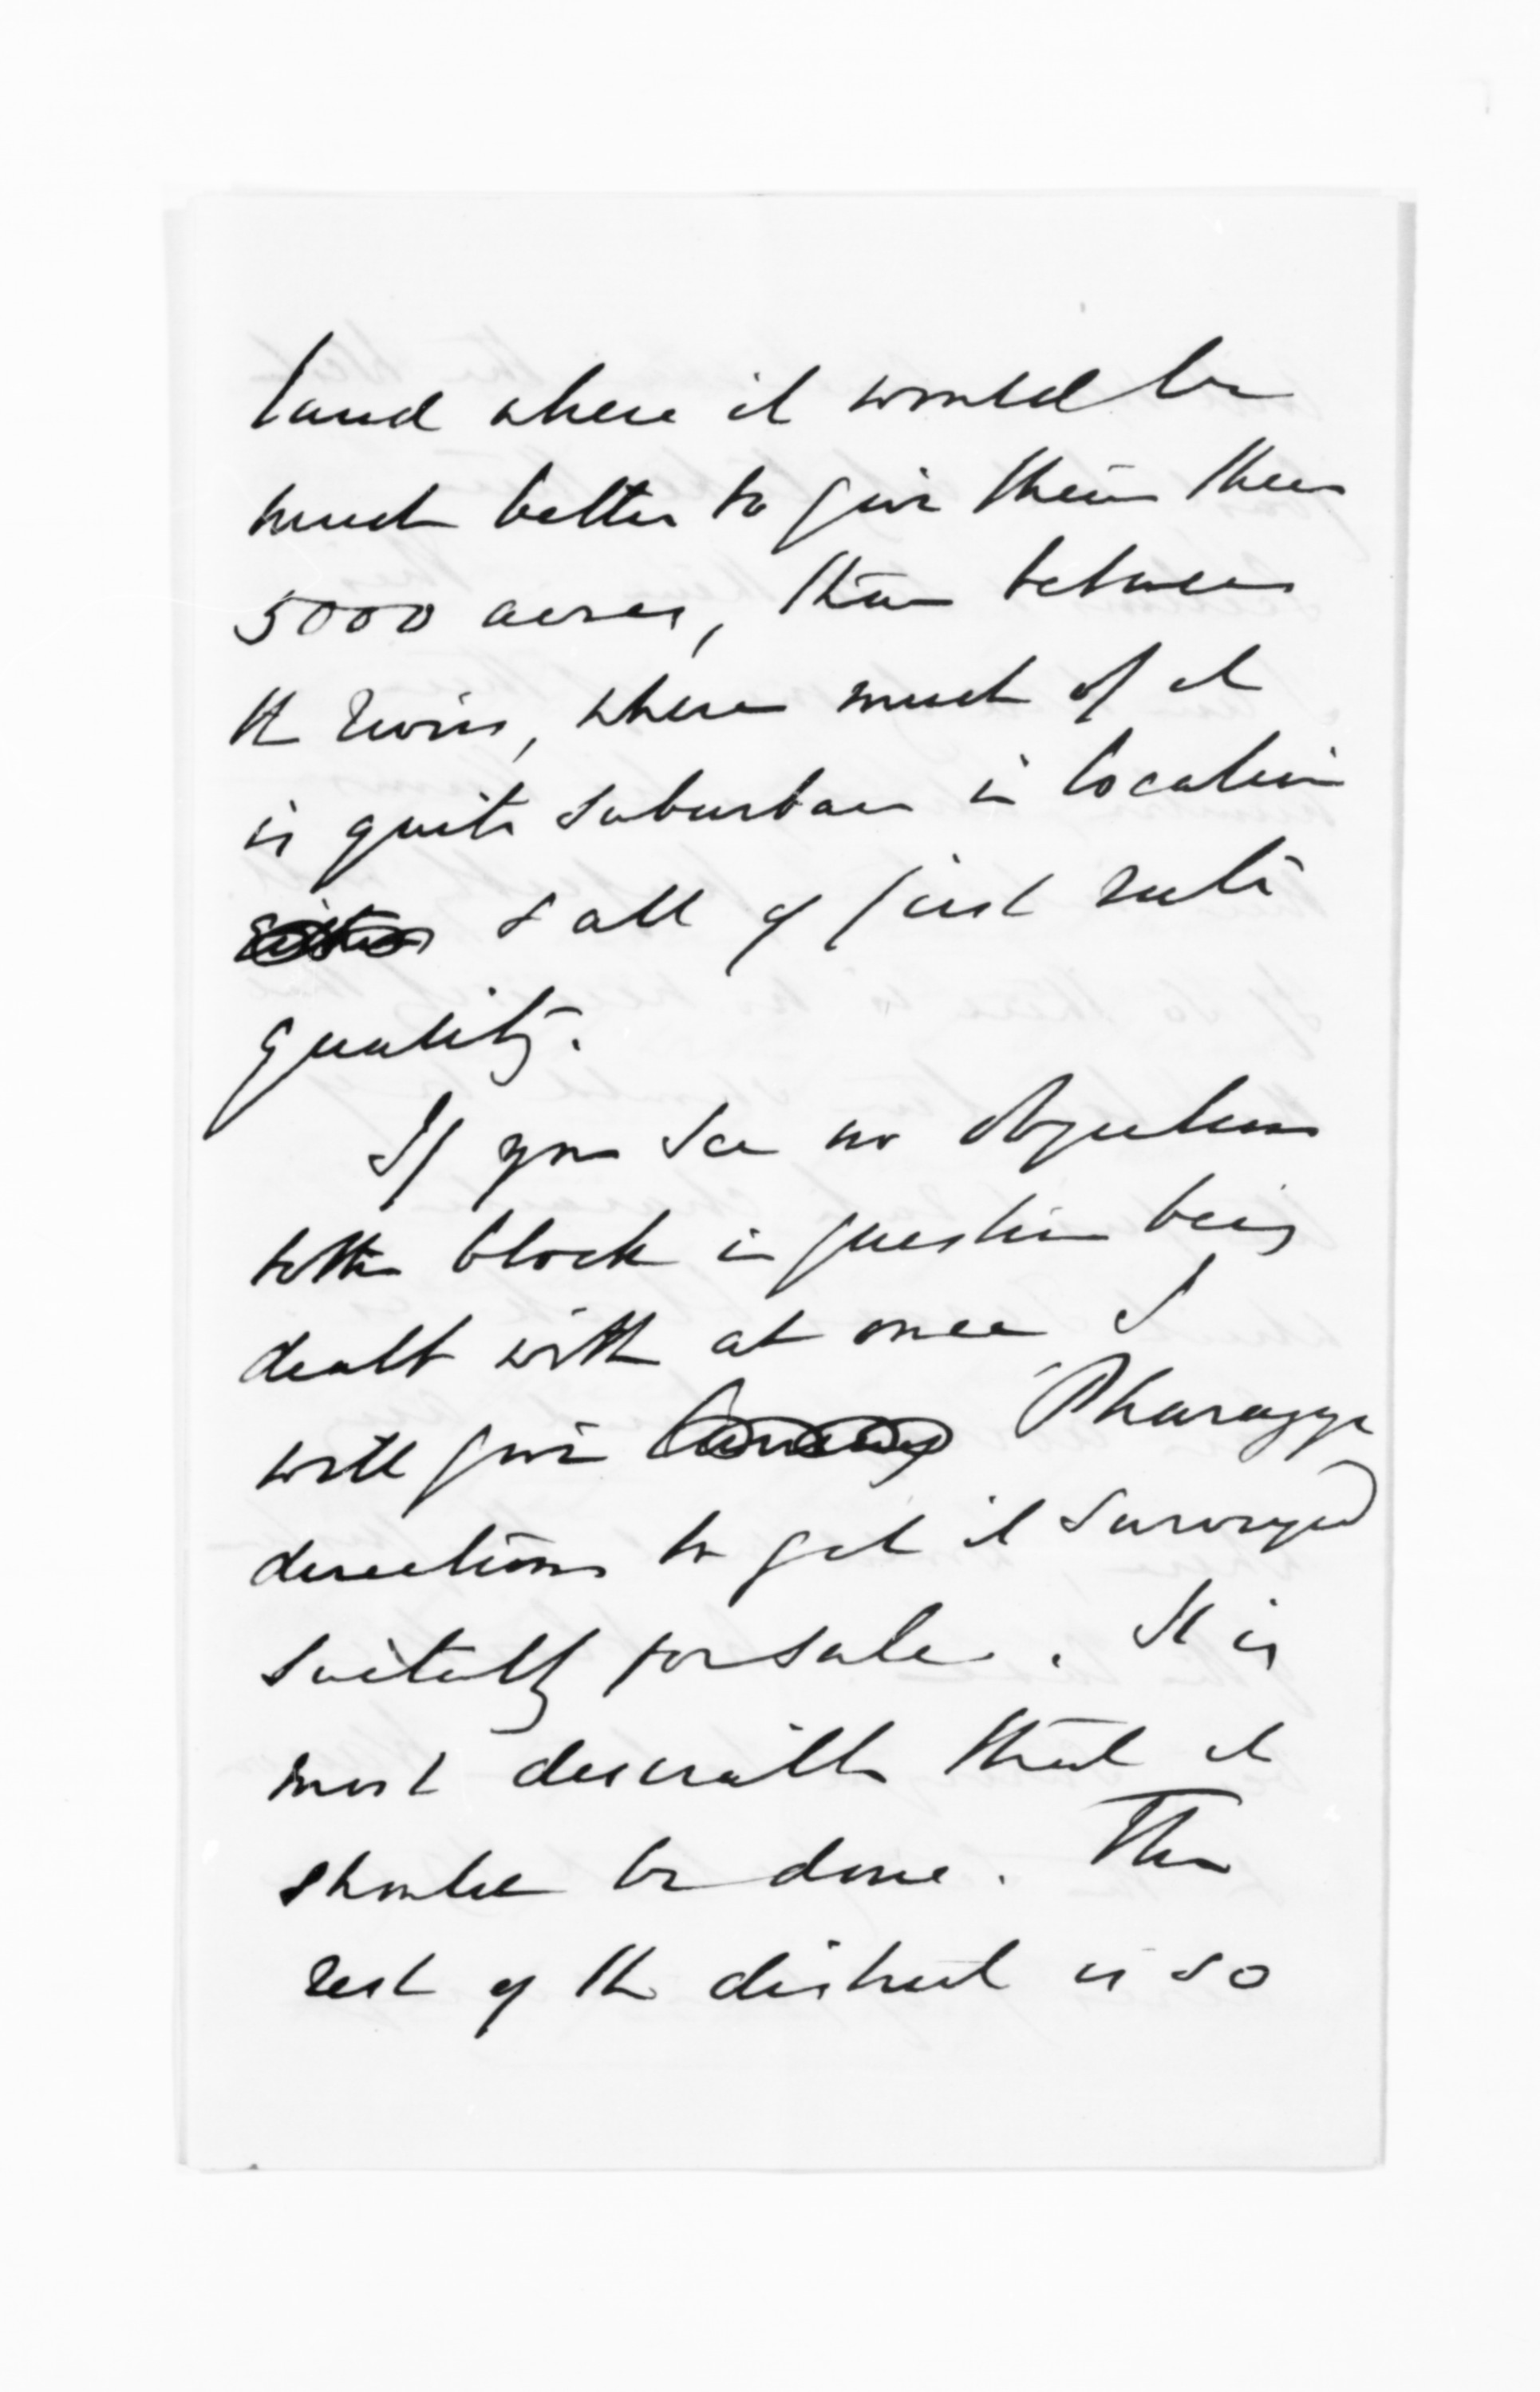 land where it would be
much better to give them their
5000 acres, than between
the rivers, where much of it
is quite suburban in location
& all of first rate
quality.
If you see no objections
to the block in question being
dealt with at once I
will give Tharagyn
directions to get it surveyed
suitably for sale. It is
most desirable that it
should be done. The
rest of the district is so